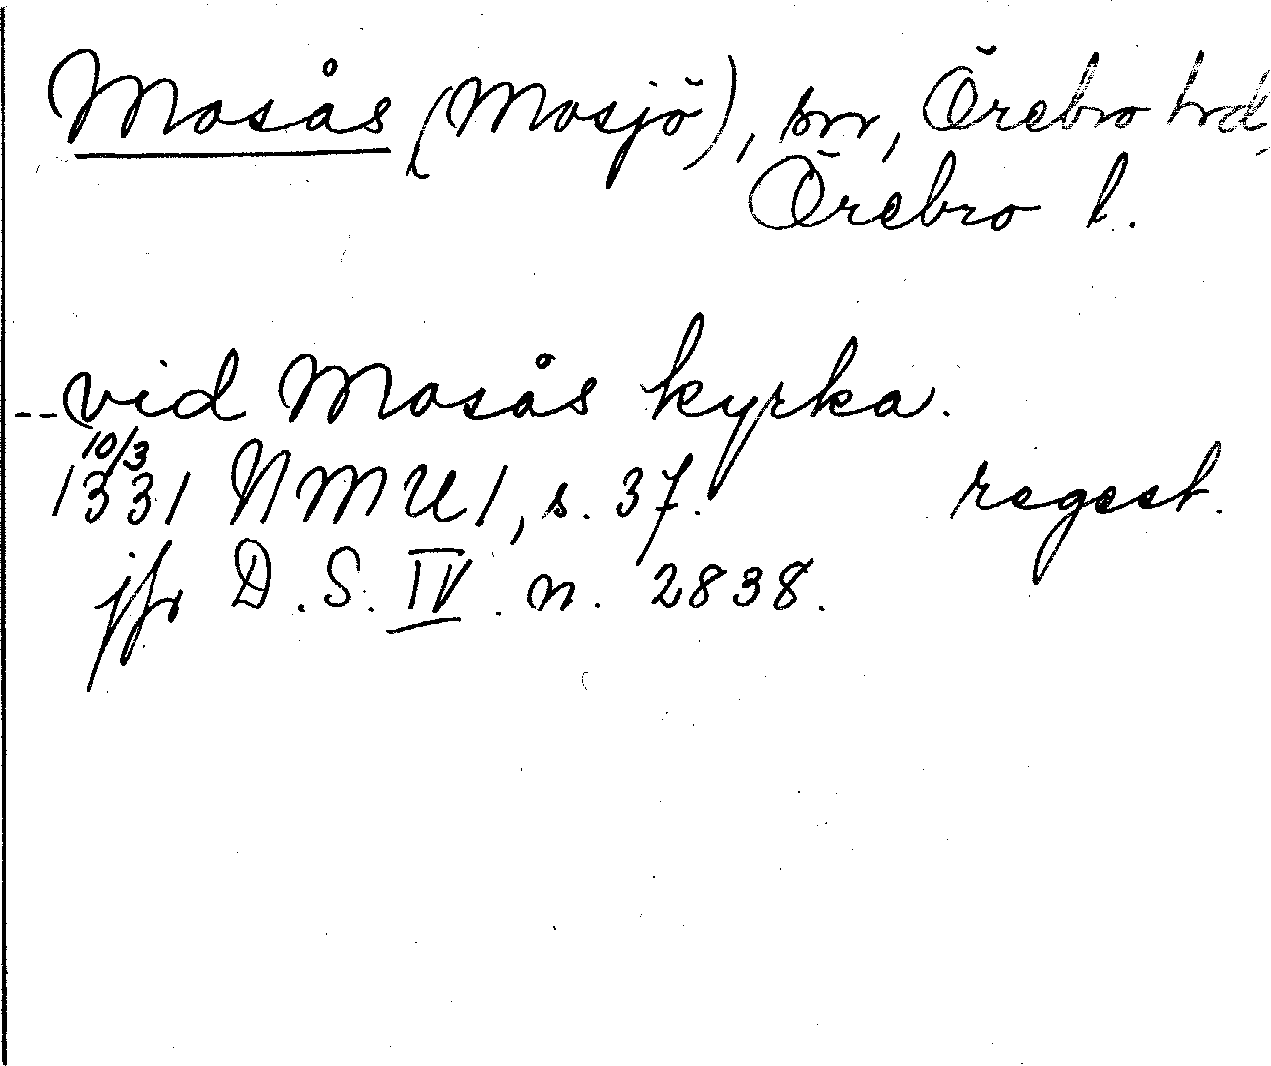 Mosås (Mosjö), sn, Örebro hd,
Örebro l.
-- vid Mosås kyrka.
10/3
1331 NMU 1, s. 37. regest.
jfr D.S. IV. n. 2838.